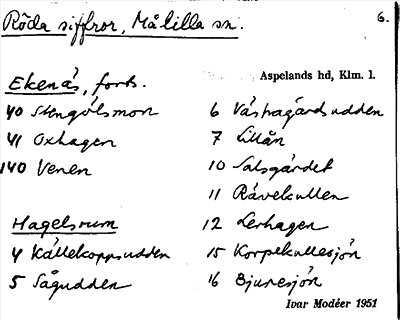 Röda siffror, Målilla sn.
6.
Ekenäs, forts.
Aspelands hd, Klm. l.
40 Stengölsmon
41 Oxhagen
140 Venen
Hagelsrum
4 Källekoppsudden
5 Sågudden
6 Västragårdsudden
7 Lillån
10 Salsgärdet
11 Rävekullen
12 Lerhagen
15 Korpekullesjön
16 Bjuresjön
Ivar Modéer 1951